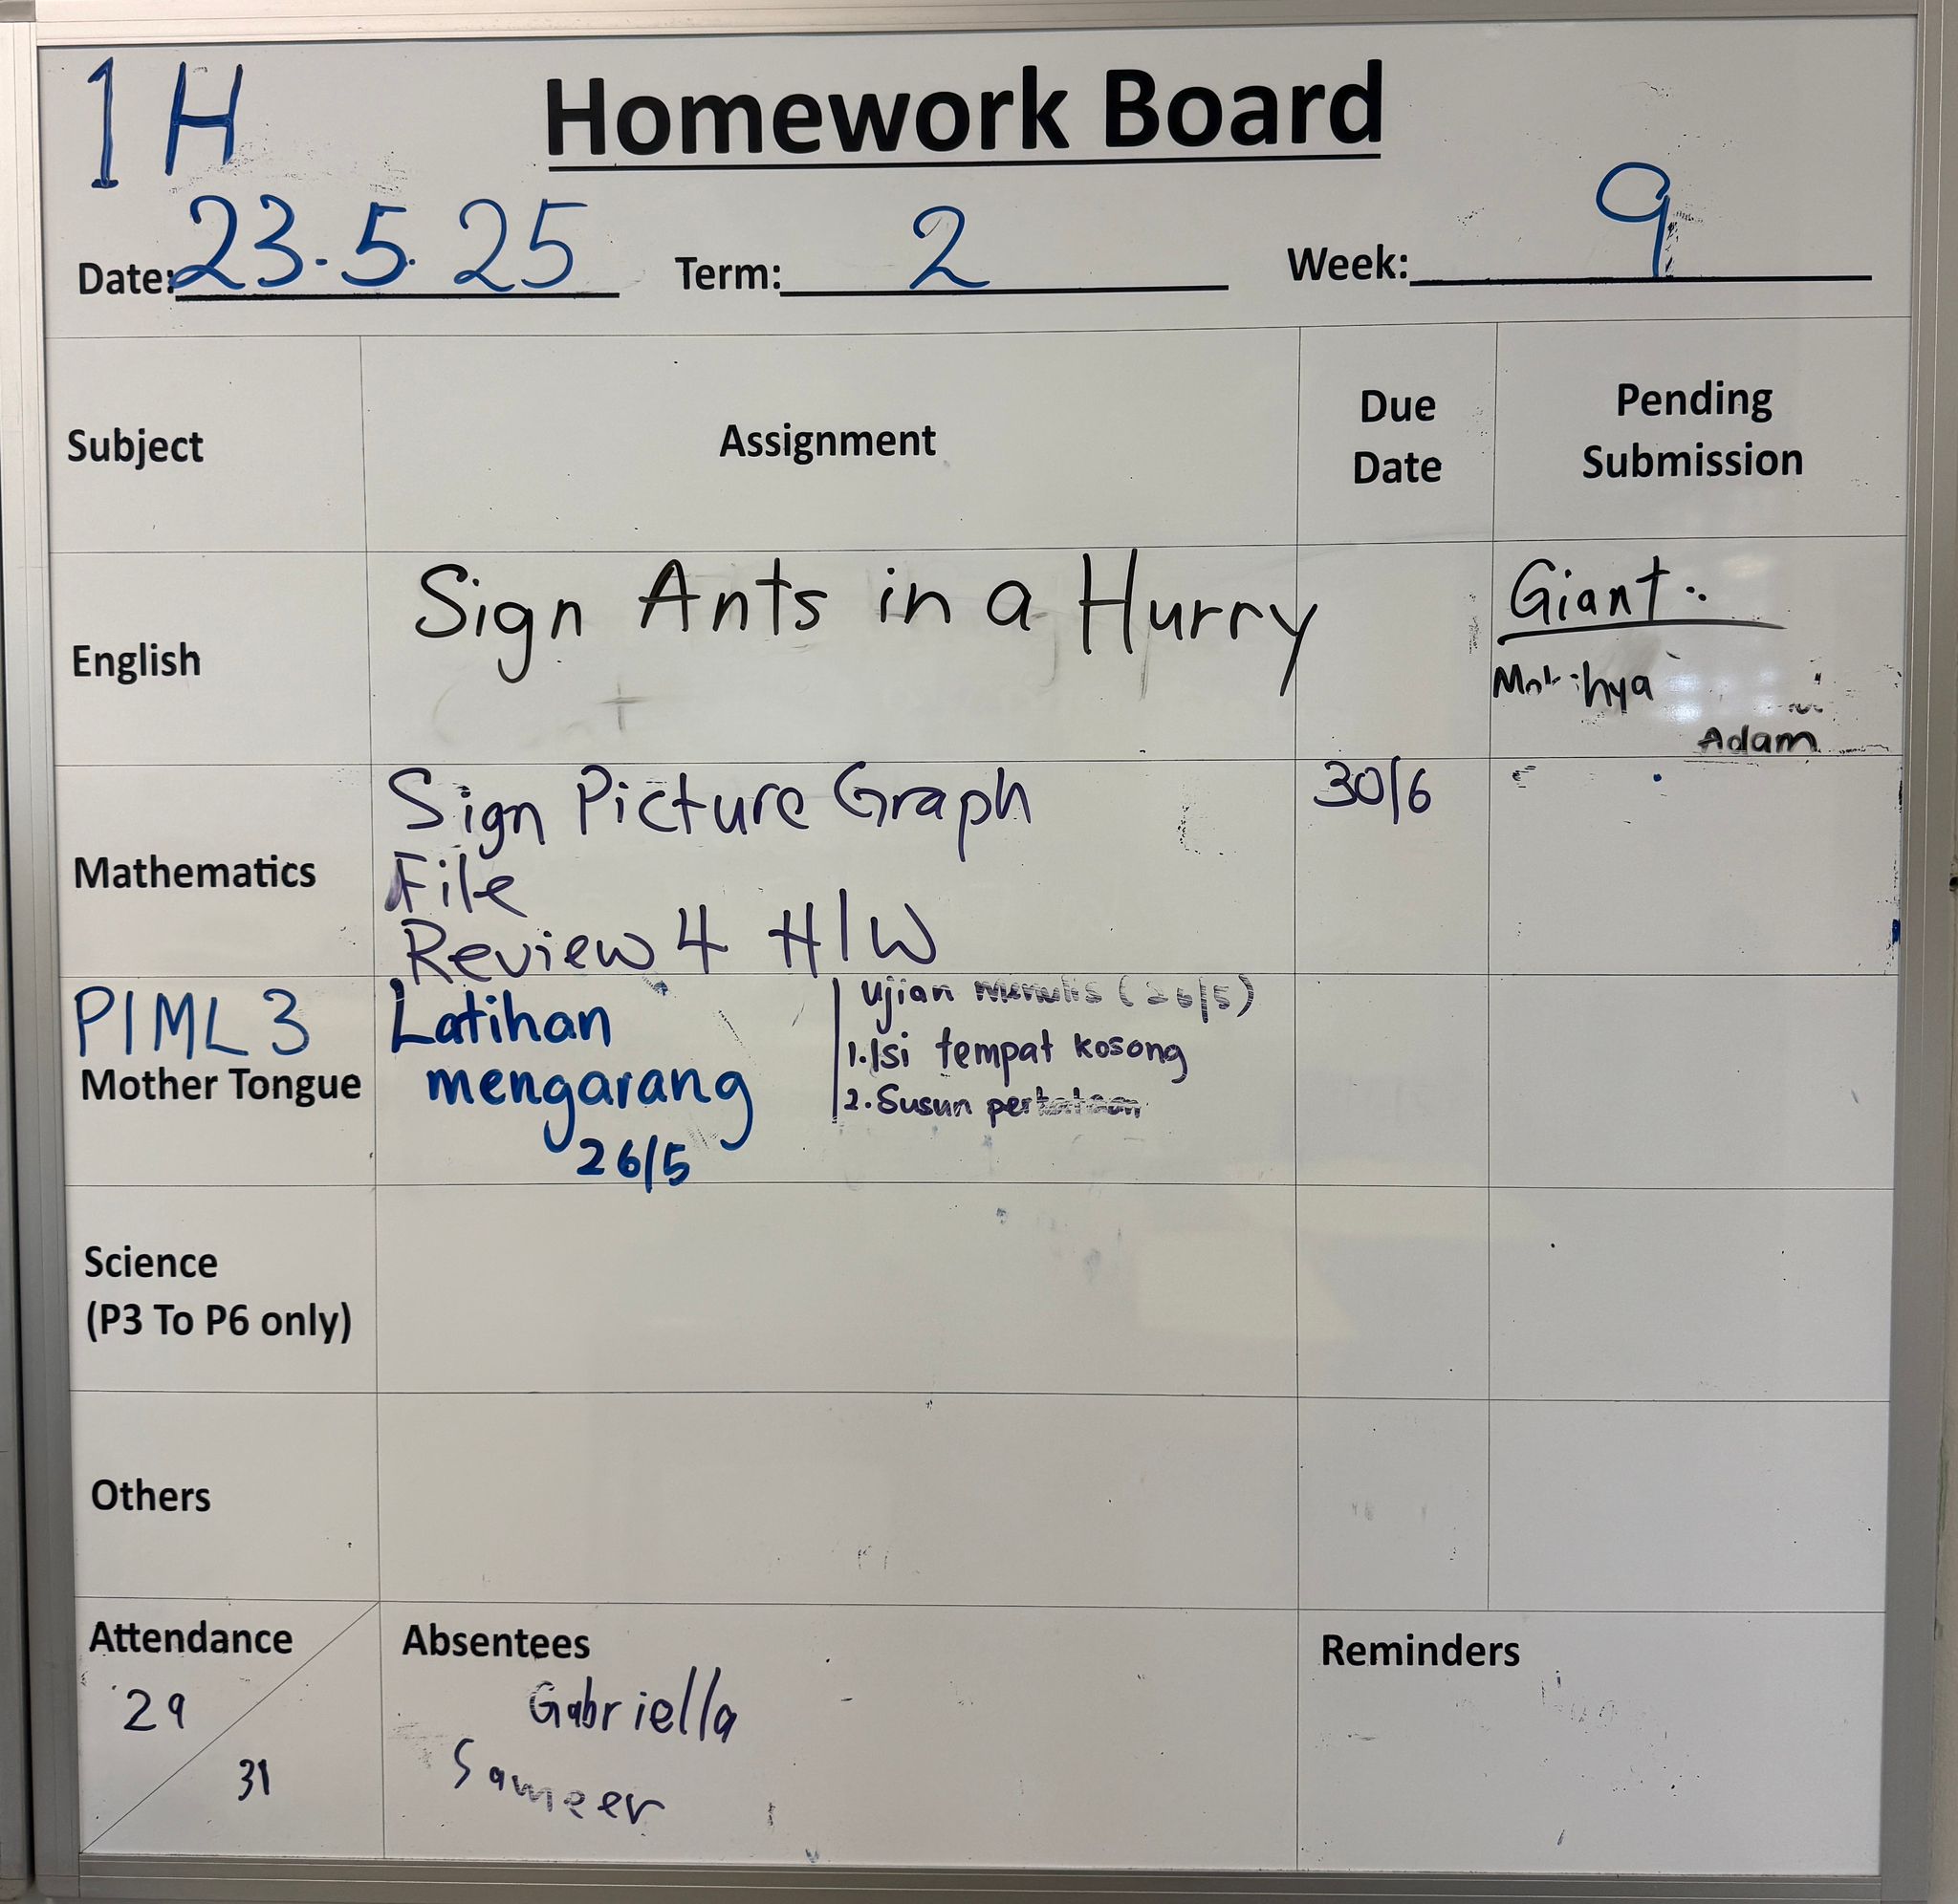 1H
Homework Board
Date: 23.5.25 Term: 2 Week: 9
Subject
Assignment
Due
Date
Pending
Submission
English
Sign Ants in a Hurry
Giant..
Adam
Mathematics
Sign Picture Graph
File
Review 4 H/W
30/6
P1ML3
Mother Tongue
Latihan
mengarang
26/5
Ujian menulis (26/5)
1. Isi tempat kosong
2. Susun perkataan
Science
(P3 To P6 only)
Others
Attendance
29
31
Absentees
Gabriella
Sameer
Reminders